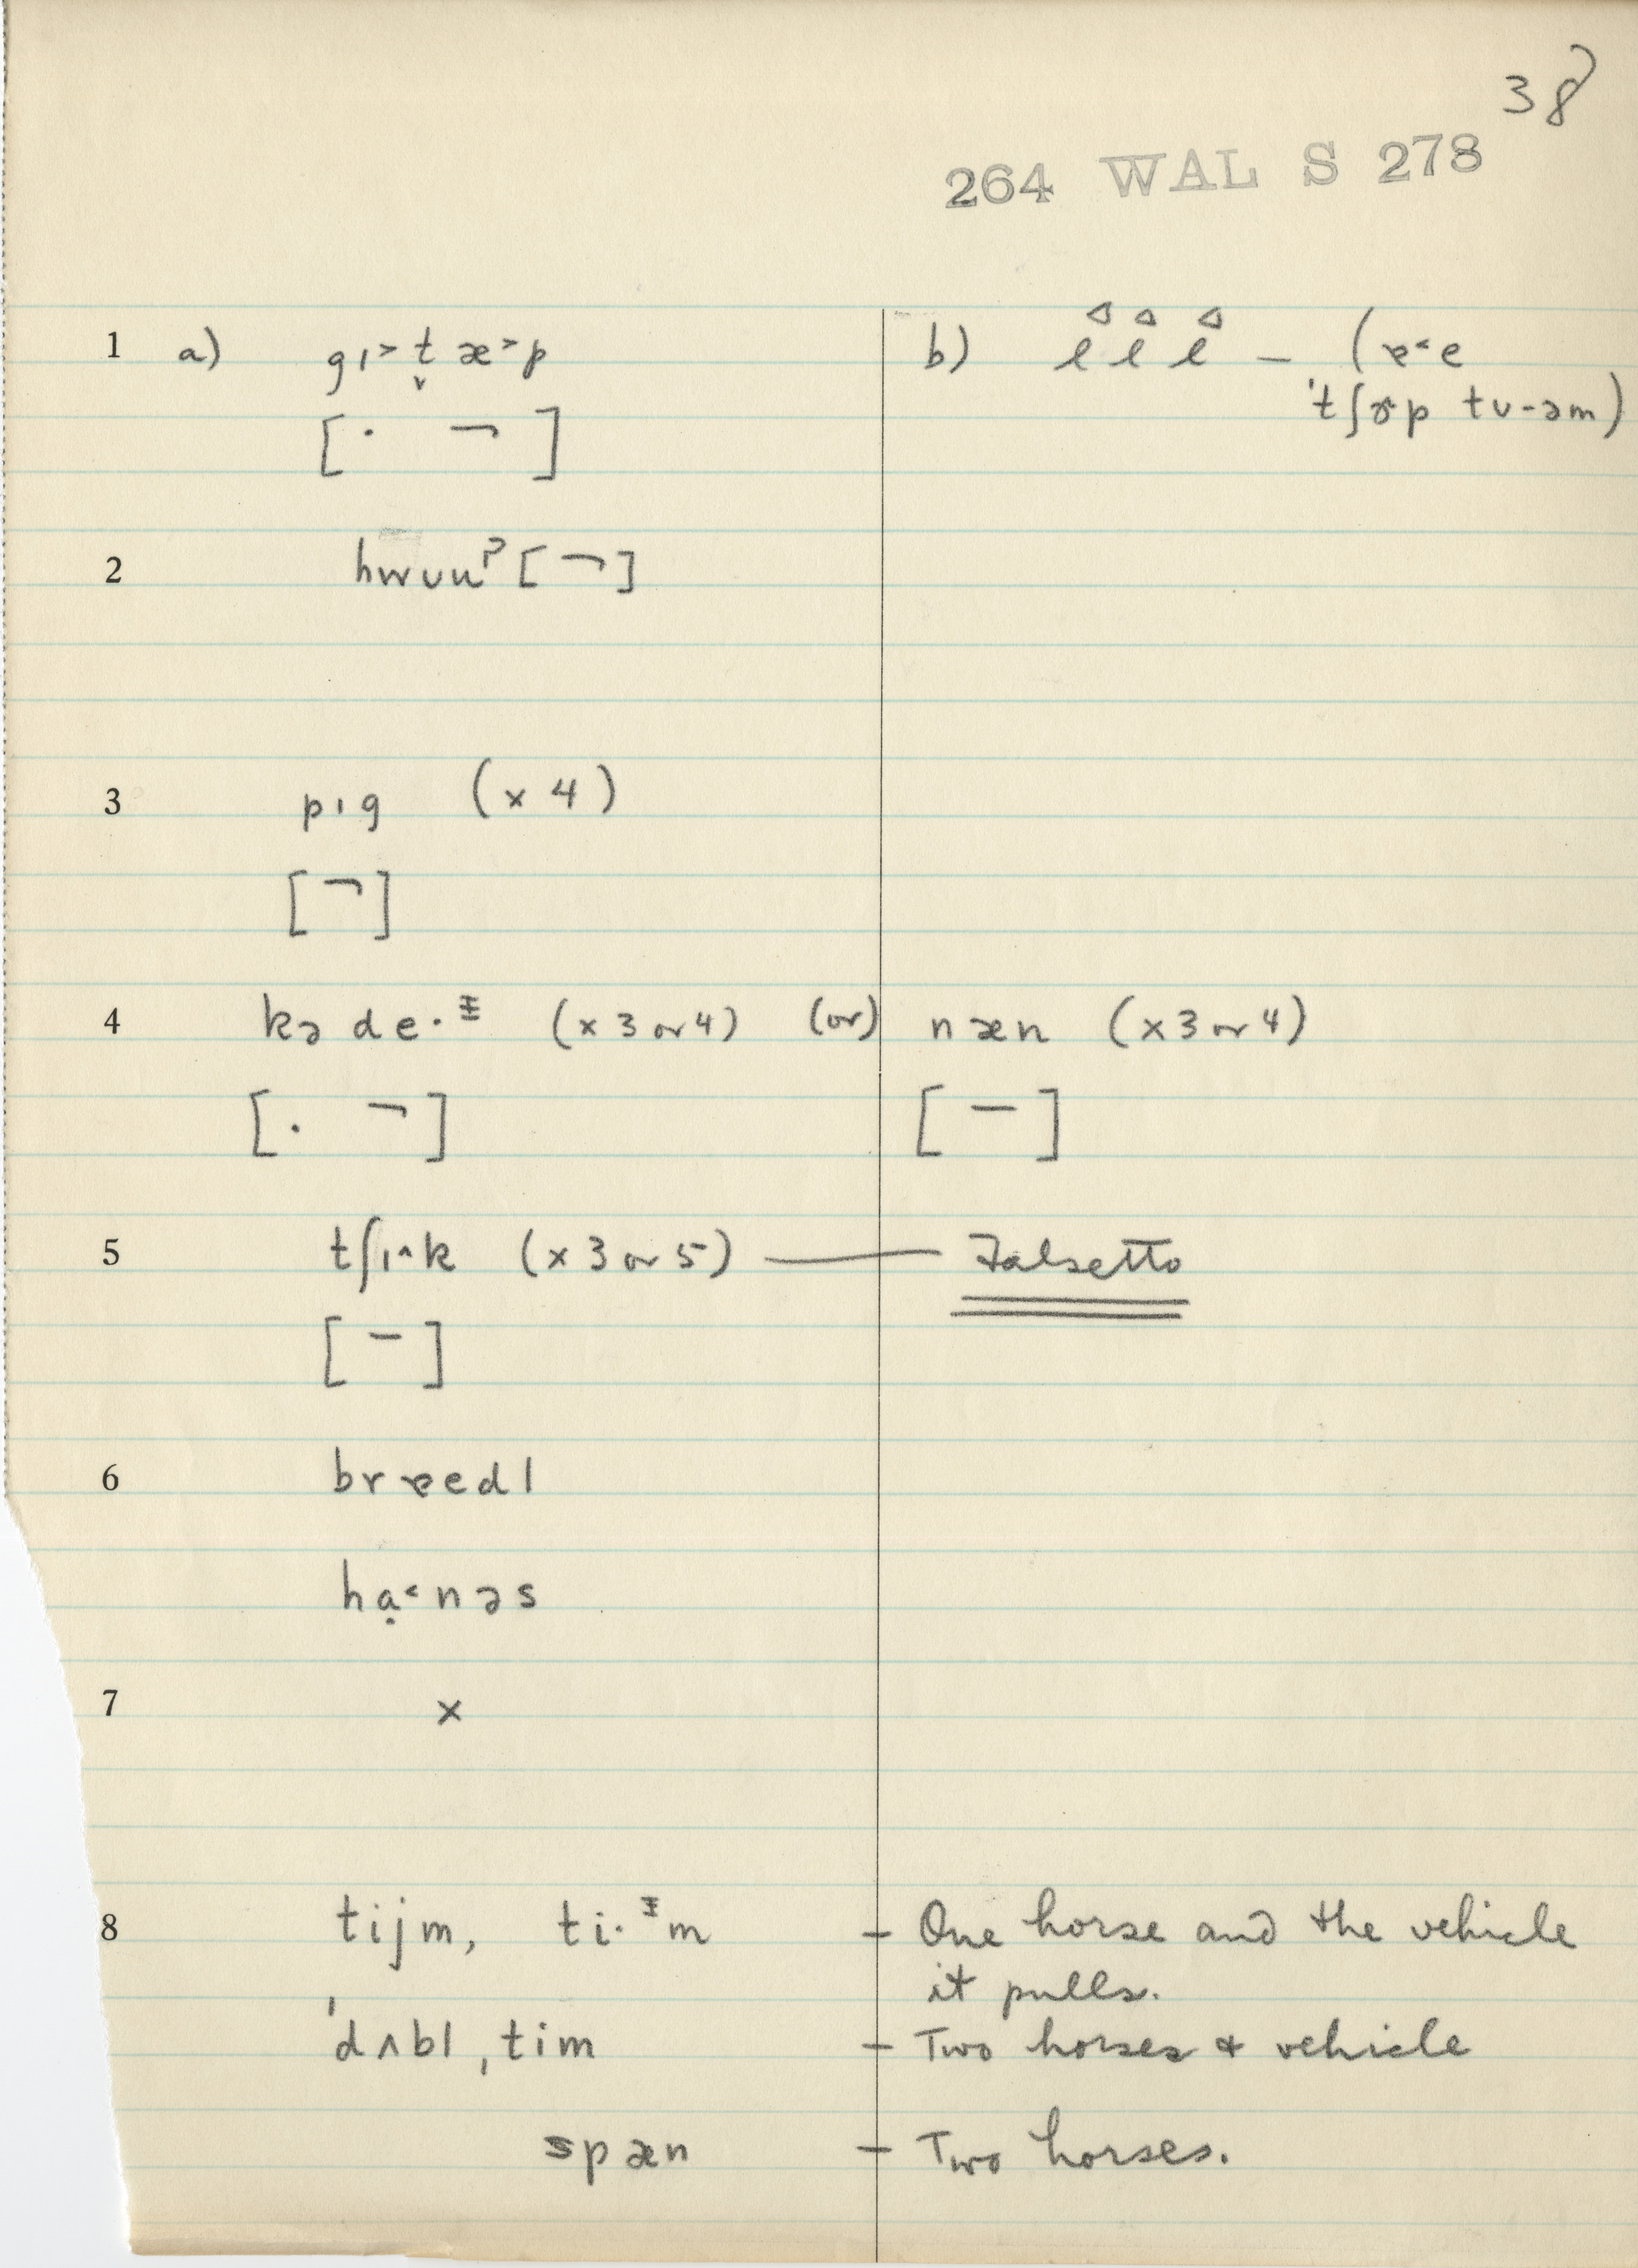 38
264 WAL S 278
1 a) gɪ˃ t̬ æ˃p b) – (ɐ˂e
'tʃɤp tʋ-əm)
[· ¬]
2 hwʊuˀ [¬]
3 pɪg (x 4)
[¬]
4 kə de·ᵻ (x 3 or 4) (or) næn (x 3 or 4)
[. ¬] [–]
5 tʃɪ^k (x 3 or 5) —— Falsetto
[–]
6 brɐedl
hạ˂nəs
7 x
8 tijm, ti·ᵻm – One horse and the vehicle
it pulls.
'dʌbl ˌtim – Two horses & vehicle
spæn – Two horses.